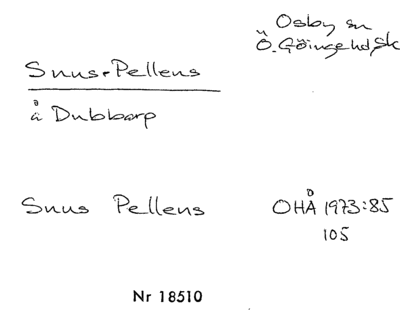 Osby sn
Ö. Göinge hd, Sk
Snus-Pellens
å Dubbarp
Snus Pellens
OHÅ 1973:85
105
Nr 18510